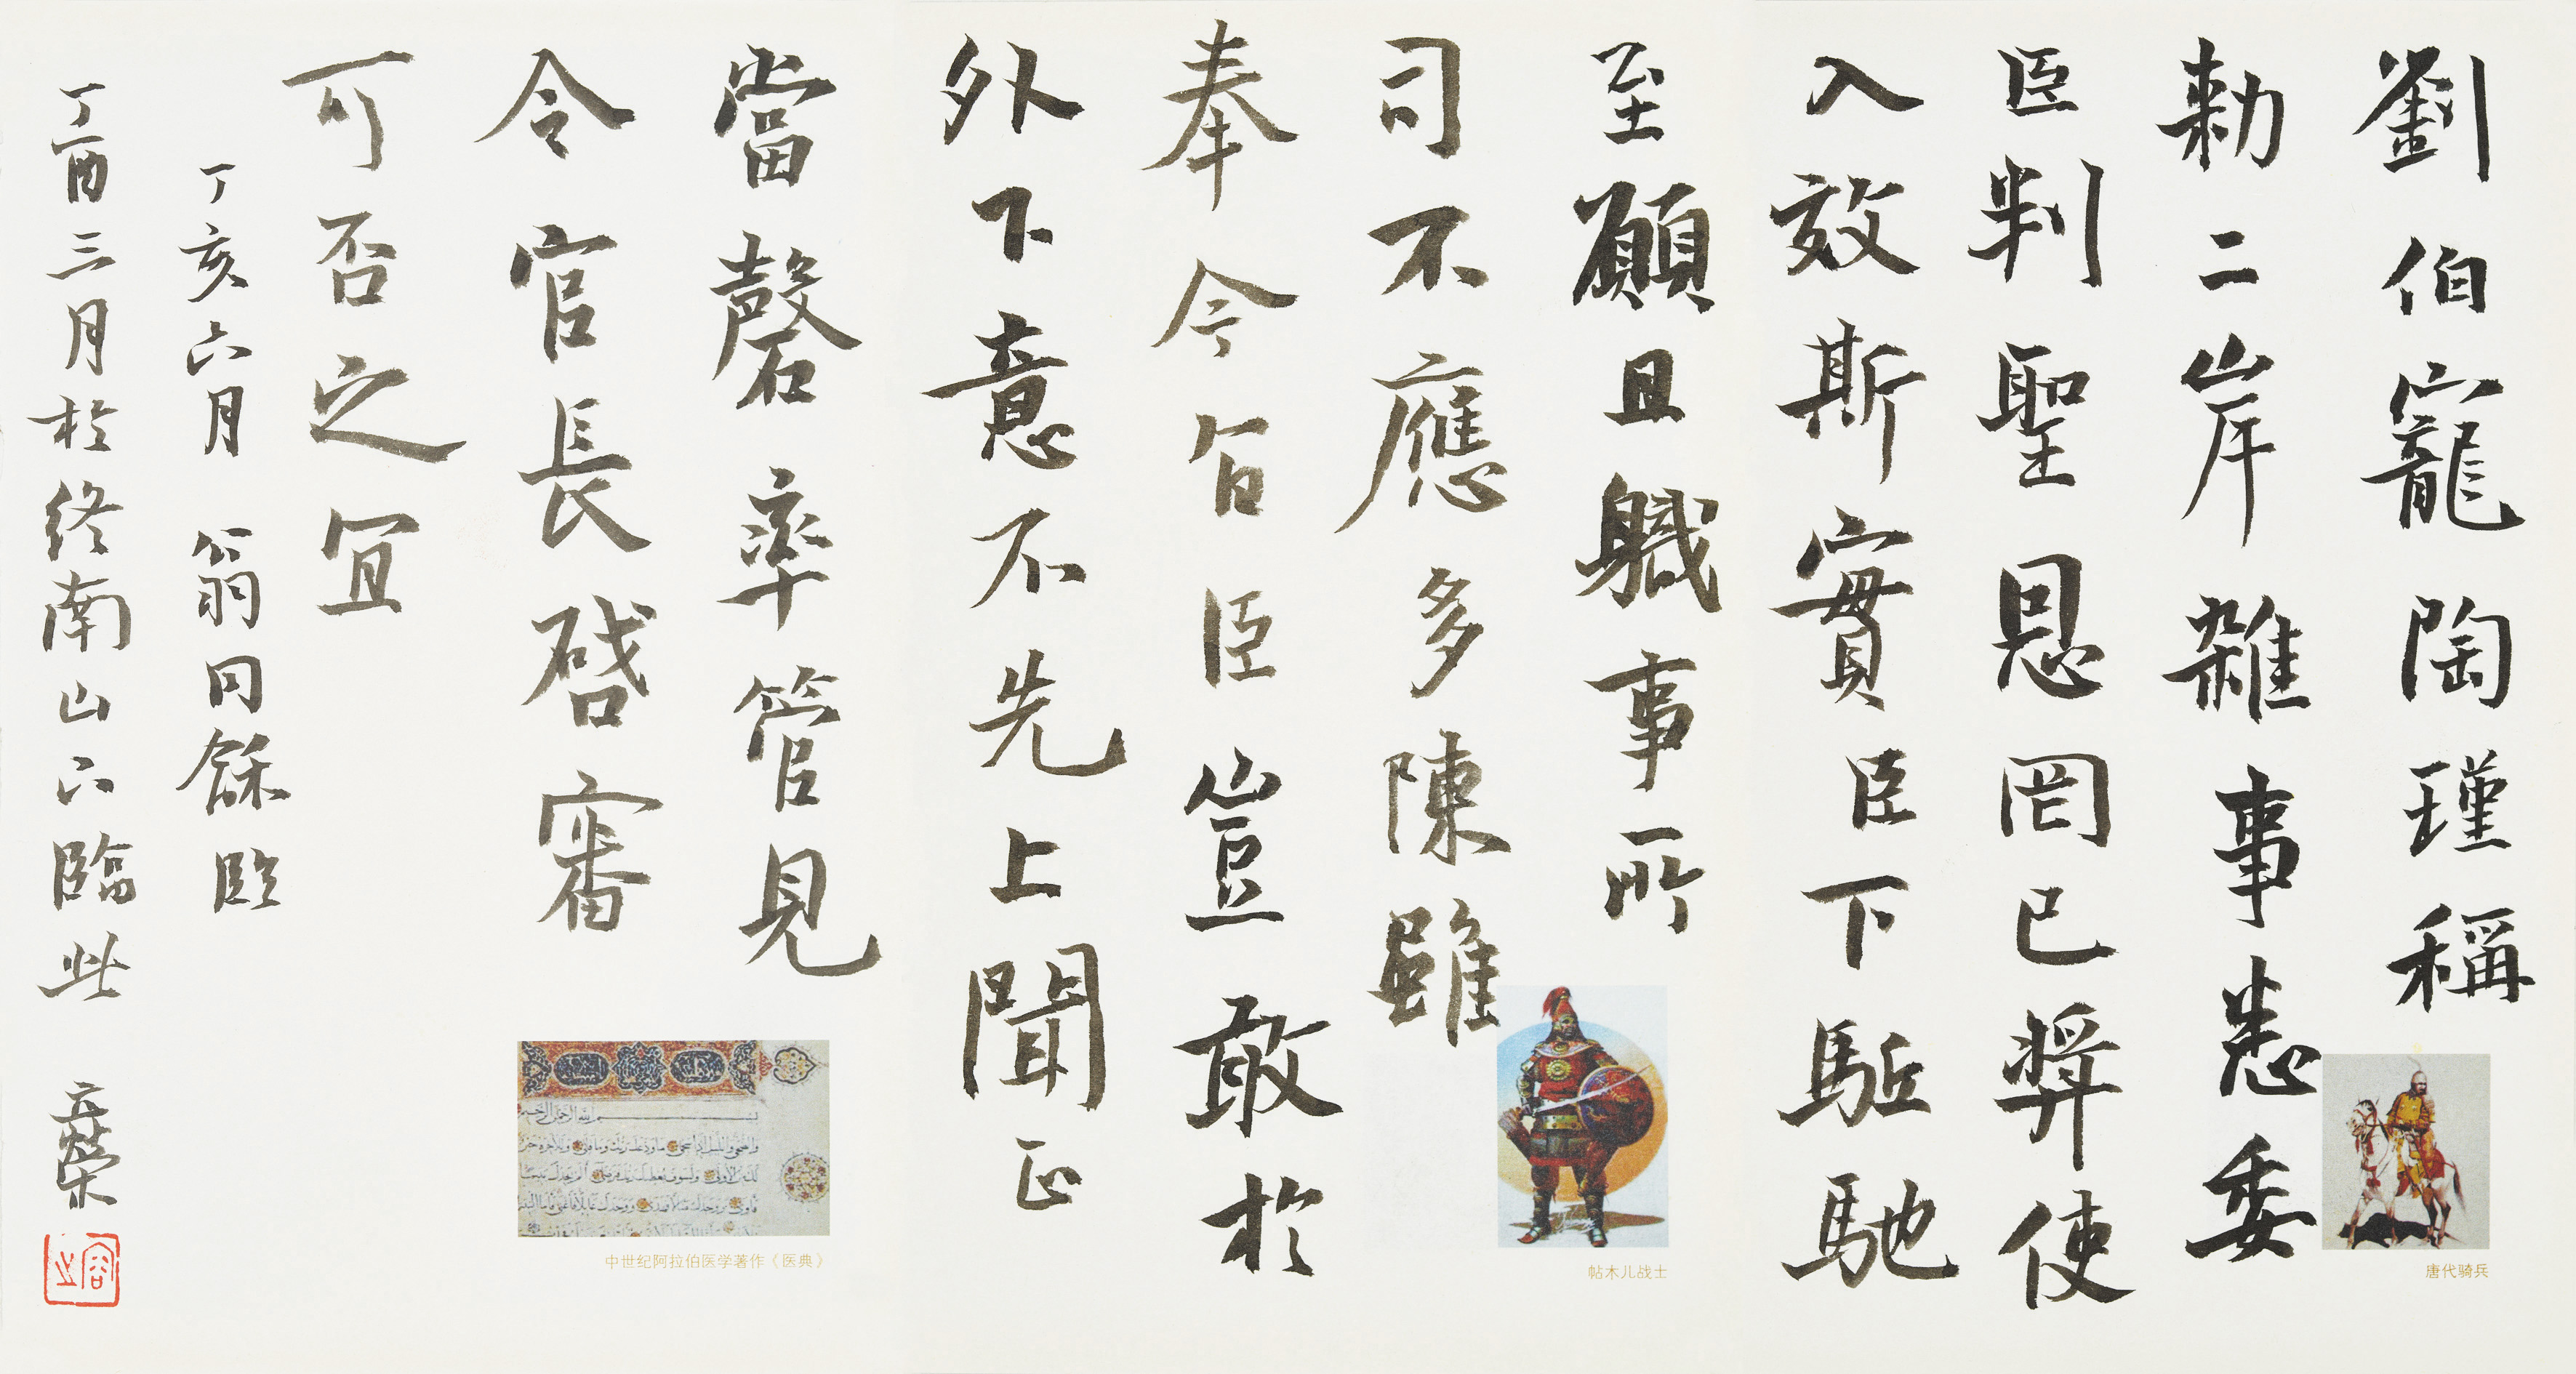 劉伯寵陶瑾稱
勅二岸雜事悉委
臣判聖恩罔已弊使
入效斯實臣下駈馳
至願且軄事所
司不應多陳雖
奉令旨臣豈敢於
外下意不先上聞正
當罄率管見
令官長啓審
可否之宜
丁亥六月 翁同龢臨
丁酉三月於終南山下臨此
唐代骑兵
帖木儿战士
中世纪阿拉伯医学著作《医典》